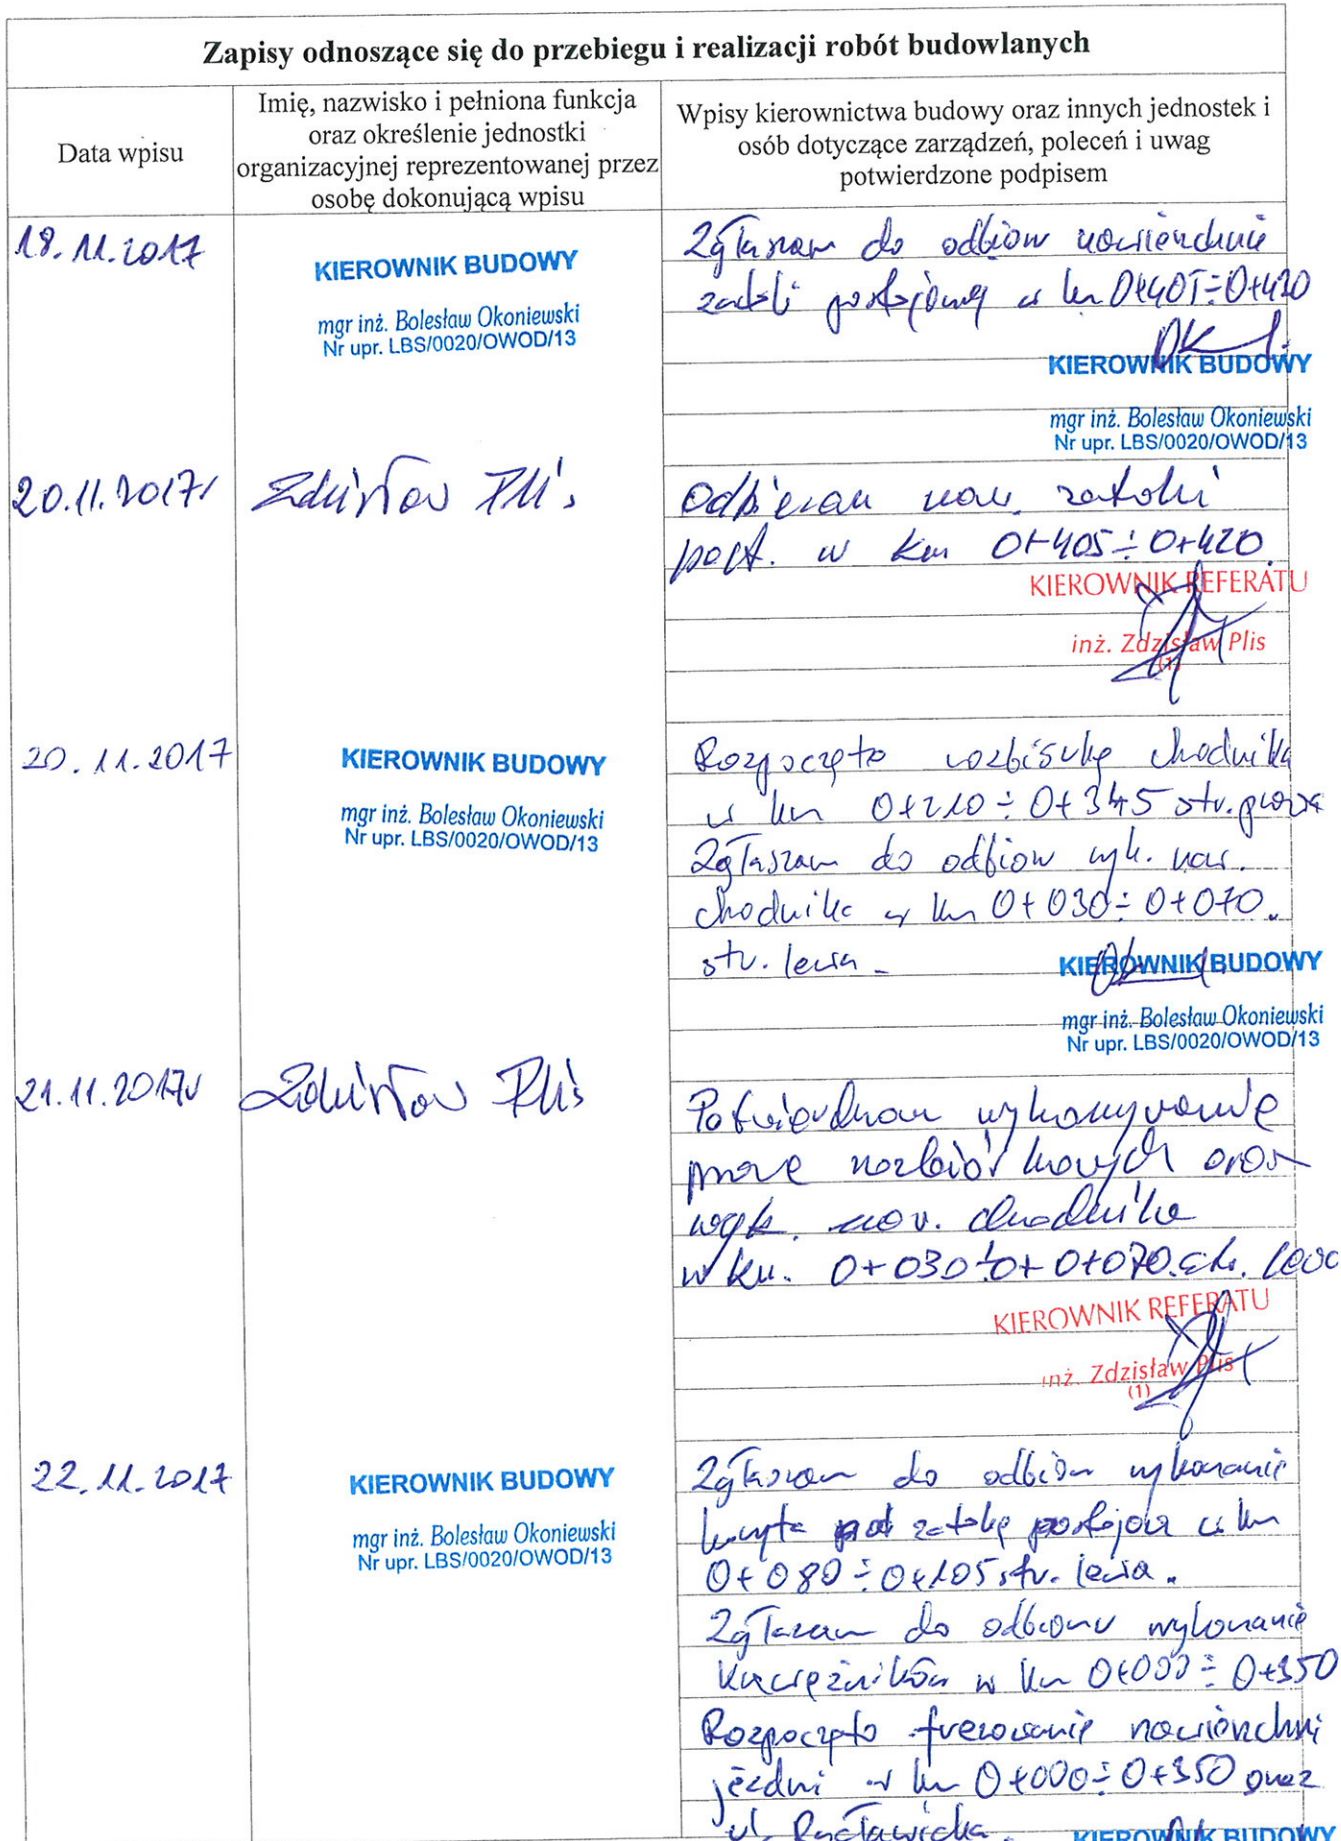 Zapisy odnoszące się do przebiegu i realizacji robót budowlanych
Data wpisu
Imię, nazwisko i pełniona funkcja
oraz określenie jednostki
organizacyjnej reprezentowanej przez
osobę dokonującą wpisu
Wpisy kierownictwa budowy oraz innych jednostek i
osób dotyczące zarządzeń, poleceń i uwag
potwierdzone podpisem
18.11.2017
KIEROWNIK BUDOWY
mgr inż. Bolesław Okoniewski
Nr upr. LBS/0020/OWOD/13
Zgłaszam do odbioru nawierzchnię
zatoki postojowej w km 0+405÷0+420
KIEROWNIK BUDOWY
mgr inż. Bolesław Okoniewski
Nr upr. LBS/0020/OWOD/13
20.11.2017r
Zdzisław Plis
Odbieram naw. zatoki
post. w km 0+405÷0+420.
KIEROWNIK REFERATU
inż. Zdzisław Plis
(1)
20.11.2017
KIEROWNIK BUDOWY
mgr inż. Bolesław Okoniewski
Nr upr. LBS/0020/OWOD/13
Rozpoczęto rozbiórkę chodnika
w km 0+210÷0+345 str. prawa
Zgłaszam do odbioru wyk. naw.
chodnika w km 0+030÷0+070.
str. lewa.
KIEROWNIK BUDOWY
mgr inż. Bolesław Okoniewski
Nr upr. LBS/0020/OWOD/13
21.11.2017r
Zdzisław Plis
Potwierdzam wykonywanie
prac rozbiórkowych oraz
wyk. naw. chodnika
w km. 0+030÷0+ 0+070. str. lewa
KIEROWNIK REFERATU
inż. Zdzisław Plis
(1)
22.11.2017
KIEROWNIK BUDOWY
mgr inż. Bolesław Okoniewski
Nr upr. LBS/0020/OWOD/13
Zgłaszam do odbioru wykonanie
koryta pod zatokę postojową w km
0+080÷0+105 str. lewa.
Zgłaszam do odbioru wykonanie
krawężników w km 0+000÷0+350
Rozpoczęto frezowanie nawierzchni
jezdni w km 0+000÷0+350 oraz
ul. Racławicka.
KIEROWNIK BUDOWY